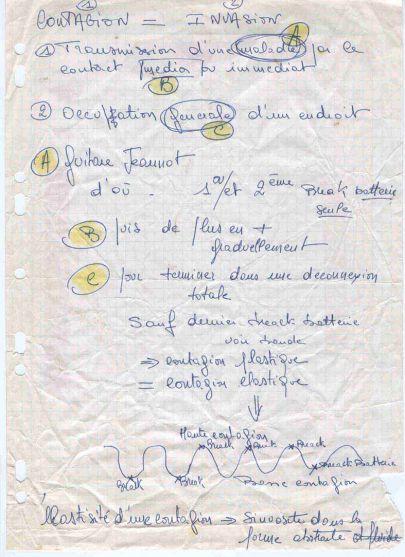 ① ②
CONTAGION = INVASION
① Transmission d'une maladie par le A
contact media ou immediat
B
② Occupation generale d'un endroit
C
A guitare Jeannot
d'où . 1er/et 2ème Break batterie
seule
B puis de plus en +
graduellement
C pour terminer dans une deconnexion
totale
Sauf dernier break batterie
voir bande
⇒ contagion plastique
= contagion elastique
⇓
Haute contagion
Break Break Break
Break Break Break Batterie
Basse contagion
Elastisité d'une contagion ⇒ Sinuosité dans la
forme abstraite et fluide